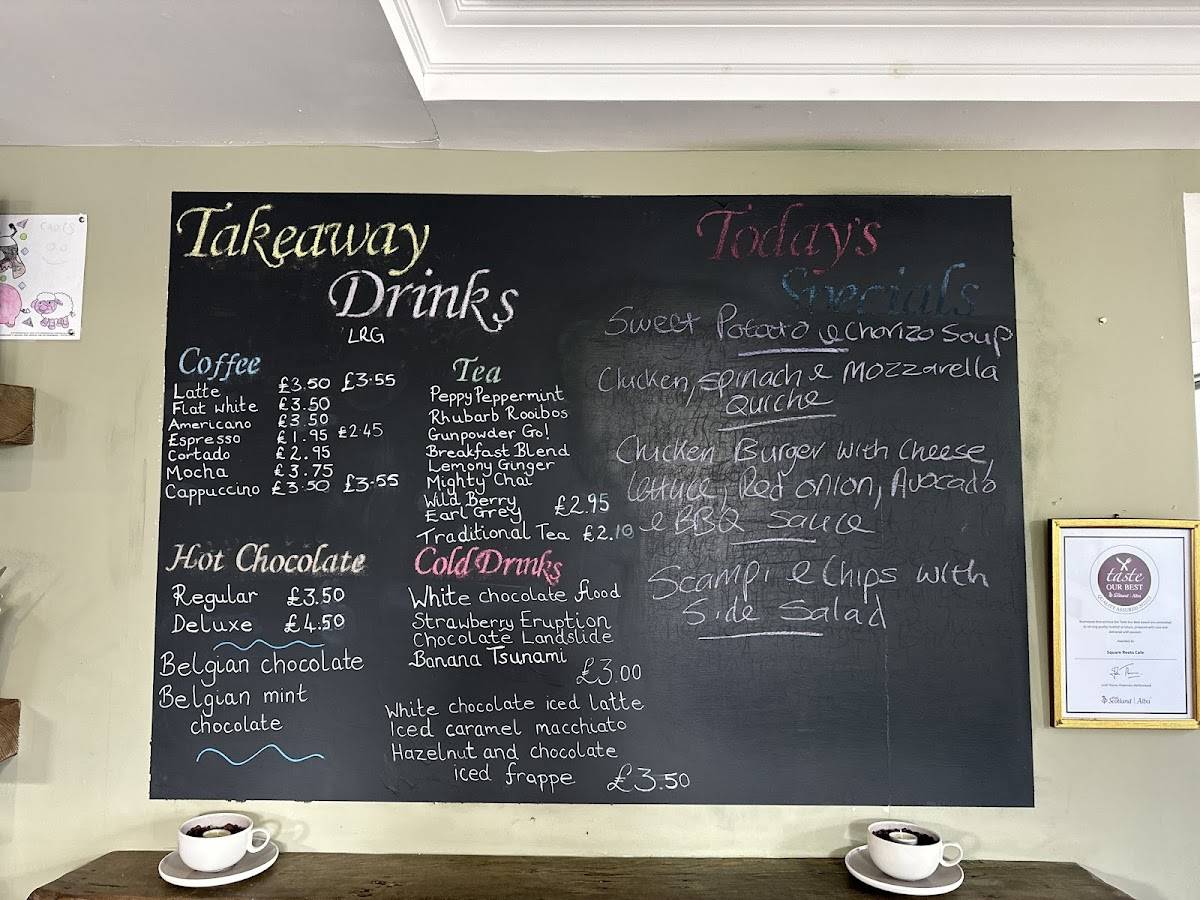 Takeaway
Drinks
LRG
Coffee
Latte £3.50 £3.55
Flat white £3.50
Americano £3.50
Espresso £1.95 £2.45
Cortado £2.95
Mocha £3.75
Cappuccino £3.50 £3.55
Tea
Peppy Peppermint
Rhubarb Rooibos
Gunpowder Go!
Breakfast Blend
Lemony Ginger
Mighty Chai
Wild Berry
Earl Grey £2.95
Traditional Tea £2.10
Hot Chocolate
Regular £3.50
Deluxe £4.50
Belgian chocolate
Belgian mint
chocolate
Cold Drinks
White chocolate flood
Strawberry Eruption
Chocolate Landslide
Banana Tsunami
£3.00
White chocolate iced latte
Iced caramel macchiato
Hazelnut and chocolate
iced frappe £3.50
Today's
Specials
Sweet Potato & Chorizo Soup
Chicken, spinach & Mozzarella
Quiche
Chicken Burger with Cheese,
lettuce, Red onion, Avocado
& BBQ Sauce
Scampi & Chips with
Side Salad
taste
OUR BEST
Scotland | Alba
Square Resto Cafe
Scotland | Alba